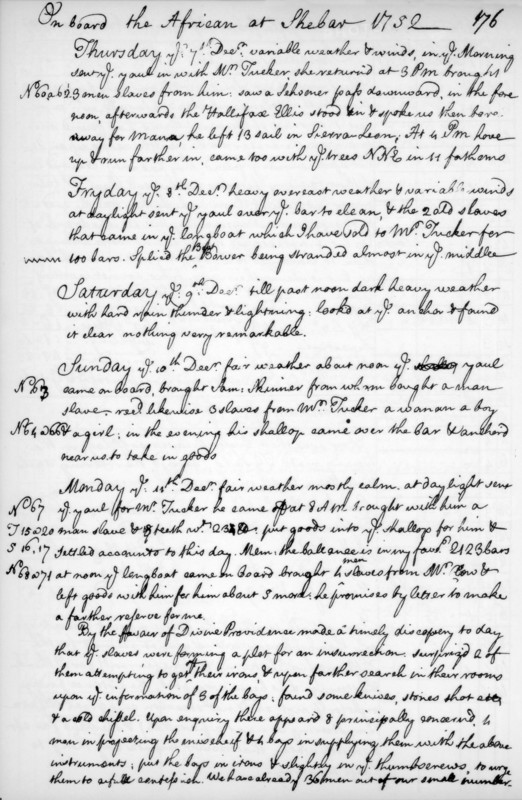 On board the African at Shebar 1752 176
Thursday ye. 7th. Decr. variable weather & winds, in ye. Morning
sent ye. yaul in with Mr. Tucker, she return'd at 3 PM brought
No. 60 a 62 3 men slaves from him. saw a Schooner pass downward, in the fore
noon, afterwards the Hallifax Ellis stood in & spoke us then bore
away for Mana, he left 13 sail in Sierra Leon; At 4 PM hove
up & run farther in, came too with ye. trees NNE in 11 fathoms
Fryday ye. 8th. Decr. heavy overcast weather & variable winds
at daylight sent ye. yaul over ye. bar to clean, & the 2 old slaves
that came in ye. longboat which I have sold to Mr. Tucker for
100 bars. Spliced the Best Bower being stranded almost in ye. middle
Saturday ye. 9th. Decr. till past noon dark heavy weather
with hard rain thunder & lightning: look'd at ye. anchor & found
it clear nothing very remarkable.
Sunday ye. 10th. Decr. fair weather about noon ye. yaul
No. 63 came on board, brought Sam: Skinner from whom bought a man
slave. recd likewise 3 slaves from Mr. Tucker a woman a boy
No. 64 a 66 & a girl; in the evening his shallop came over the bar & anchord
near us, to take in goods
Monday ye. 11th. Decr. fair weather mostly calm. at daylight sent
No. 67 ye. yaul for Mr. Tucker he came at 8 AM. brought with him a
T 15 a 20 man slave & teeth wt. put goods into ye. shallop for him &
S 16. 17 settled accounts to this day. Mem: the ballance is in my favr. 2123 bars
No. 68 a 71 at noon ye. longboat came on board brought 4 men slaves from Mr. &
left goods with him for him about 5 more: he promises by letter to make
a farther reserve for me.
By the favour of Divine Providence made a timely discovery to day
that ye. slaves were forming a plot for an insurrection. surpriz'd 2 of
them attempting to get their irons & upon farther search in their rooms
upon ye. information of 3 of the boys; found some knives, stones shot &c
& a cold chissel. Upon enquiry there appeard 8 principally concerned, 4
men in projecting the mischeif & 4 boys in supplying them with the above
instruments; put the boys in irons & slightly in ye. thumbscrews, to urge
them to a full confession. We have already 36 men out of our small number.